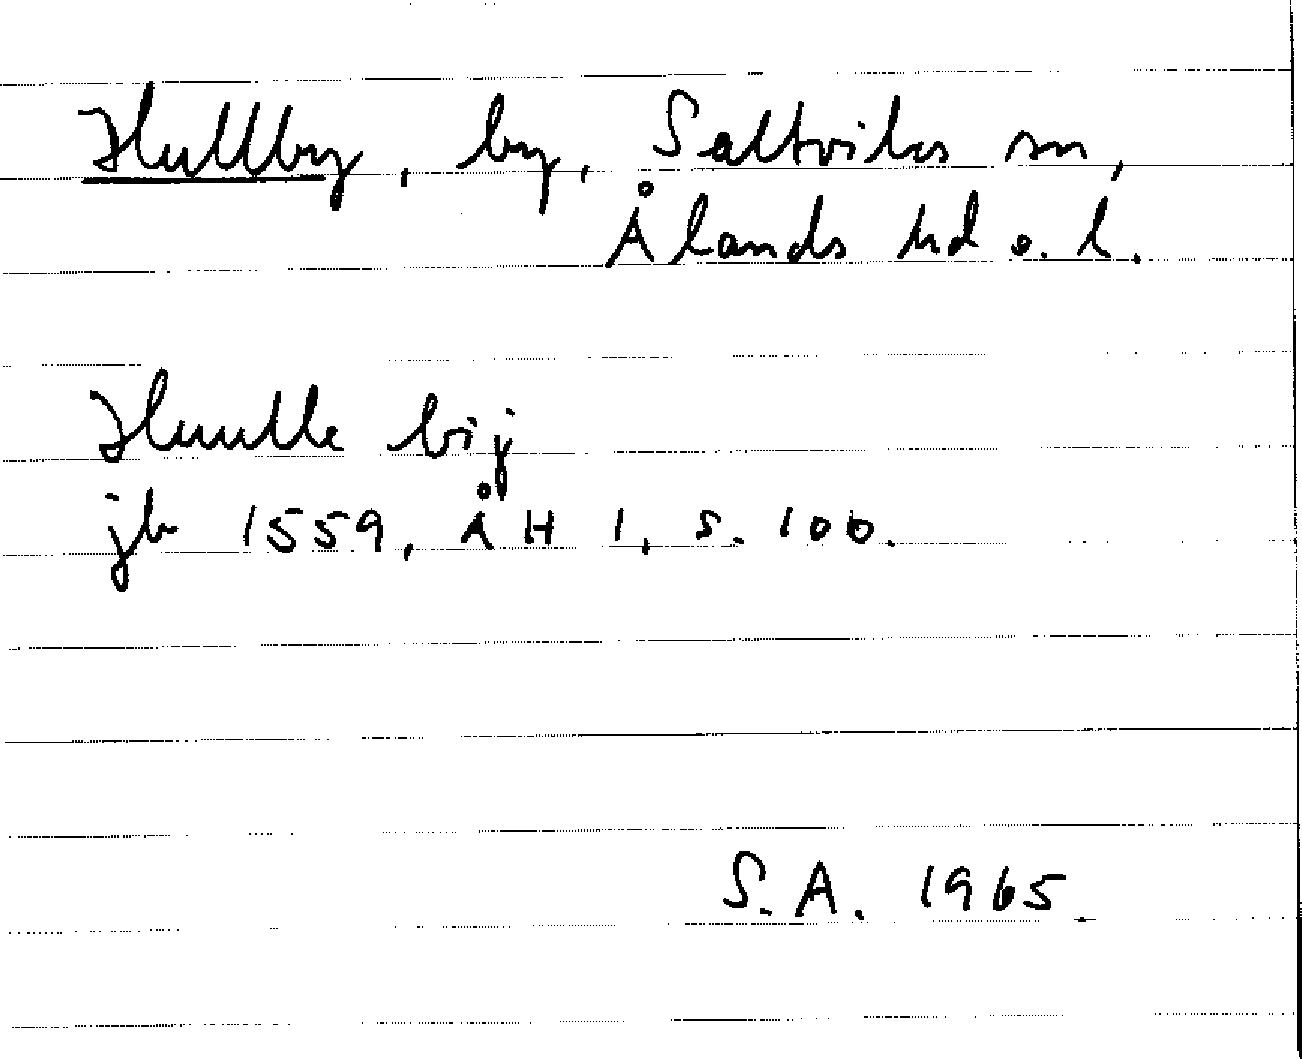 Hullby, by, Saltviks sn,
Ålands hd o. l.
Huulle bij
jb 1559, ÅH 1, s. 100.
S.A. 1965.